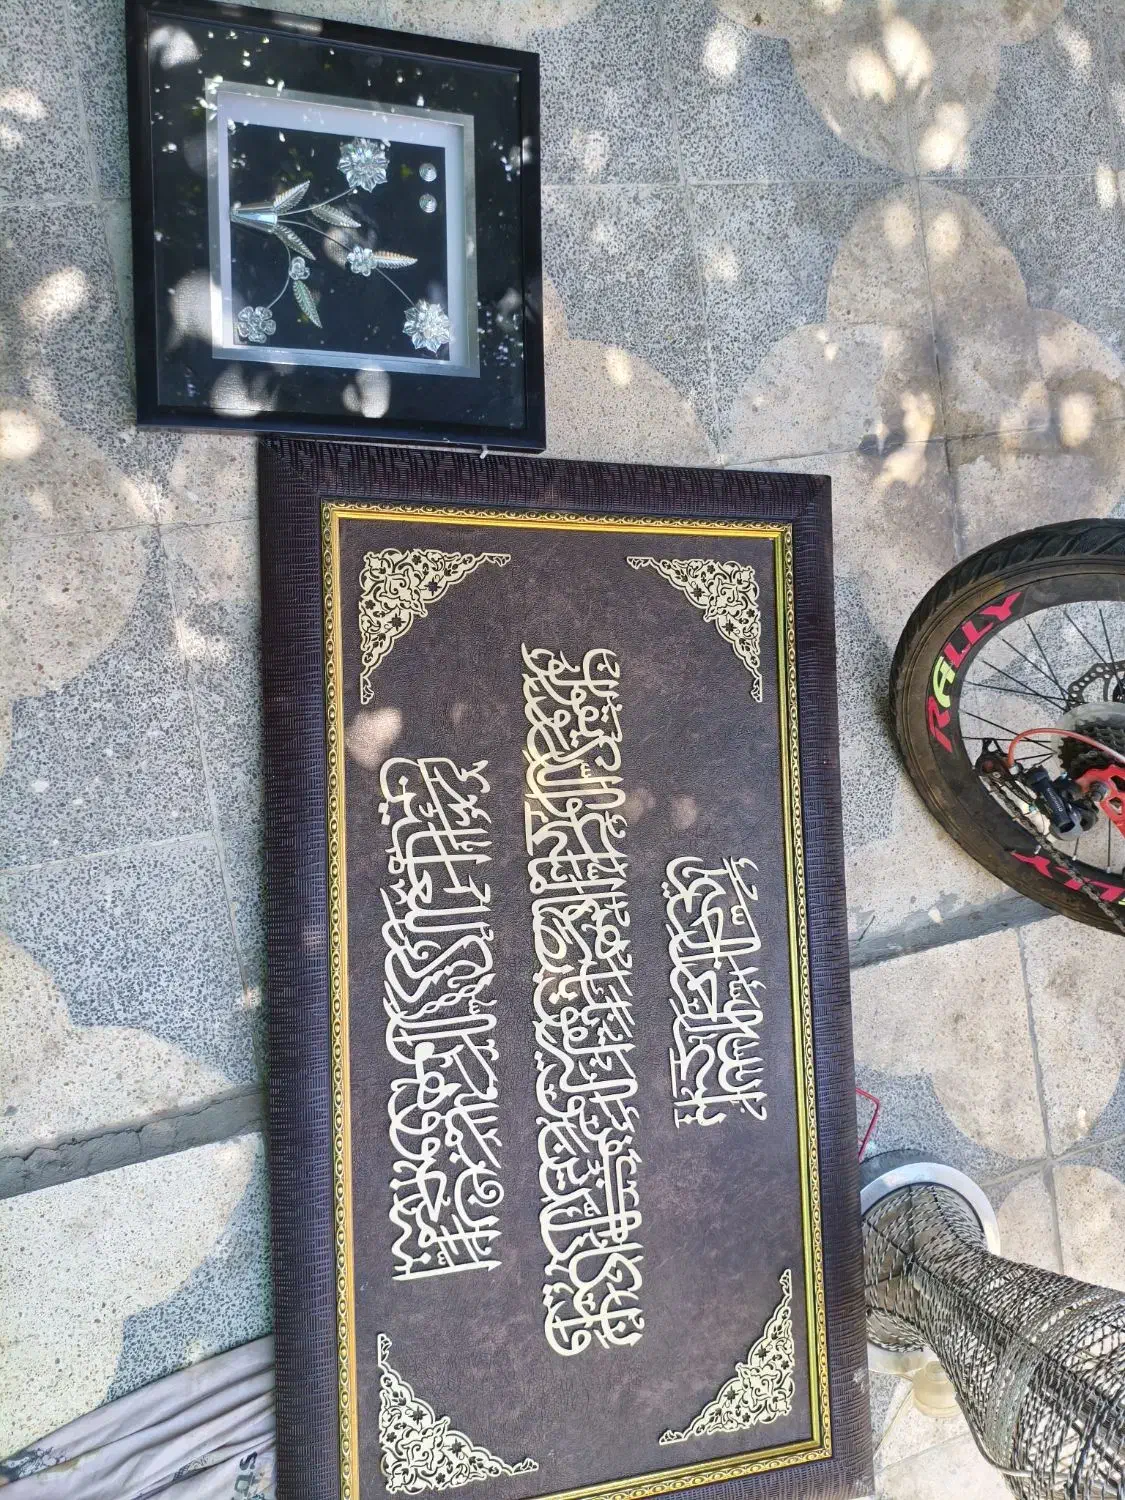 بسم الله الرحمن الرحيم
وان يكاد الذين كفروا ليزلقونك بابصارهم لما سمعوا الذكر ويقولون
انه لمجنون وما هو الا ذكر للعالمين
RALLY